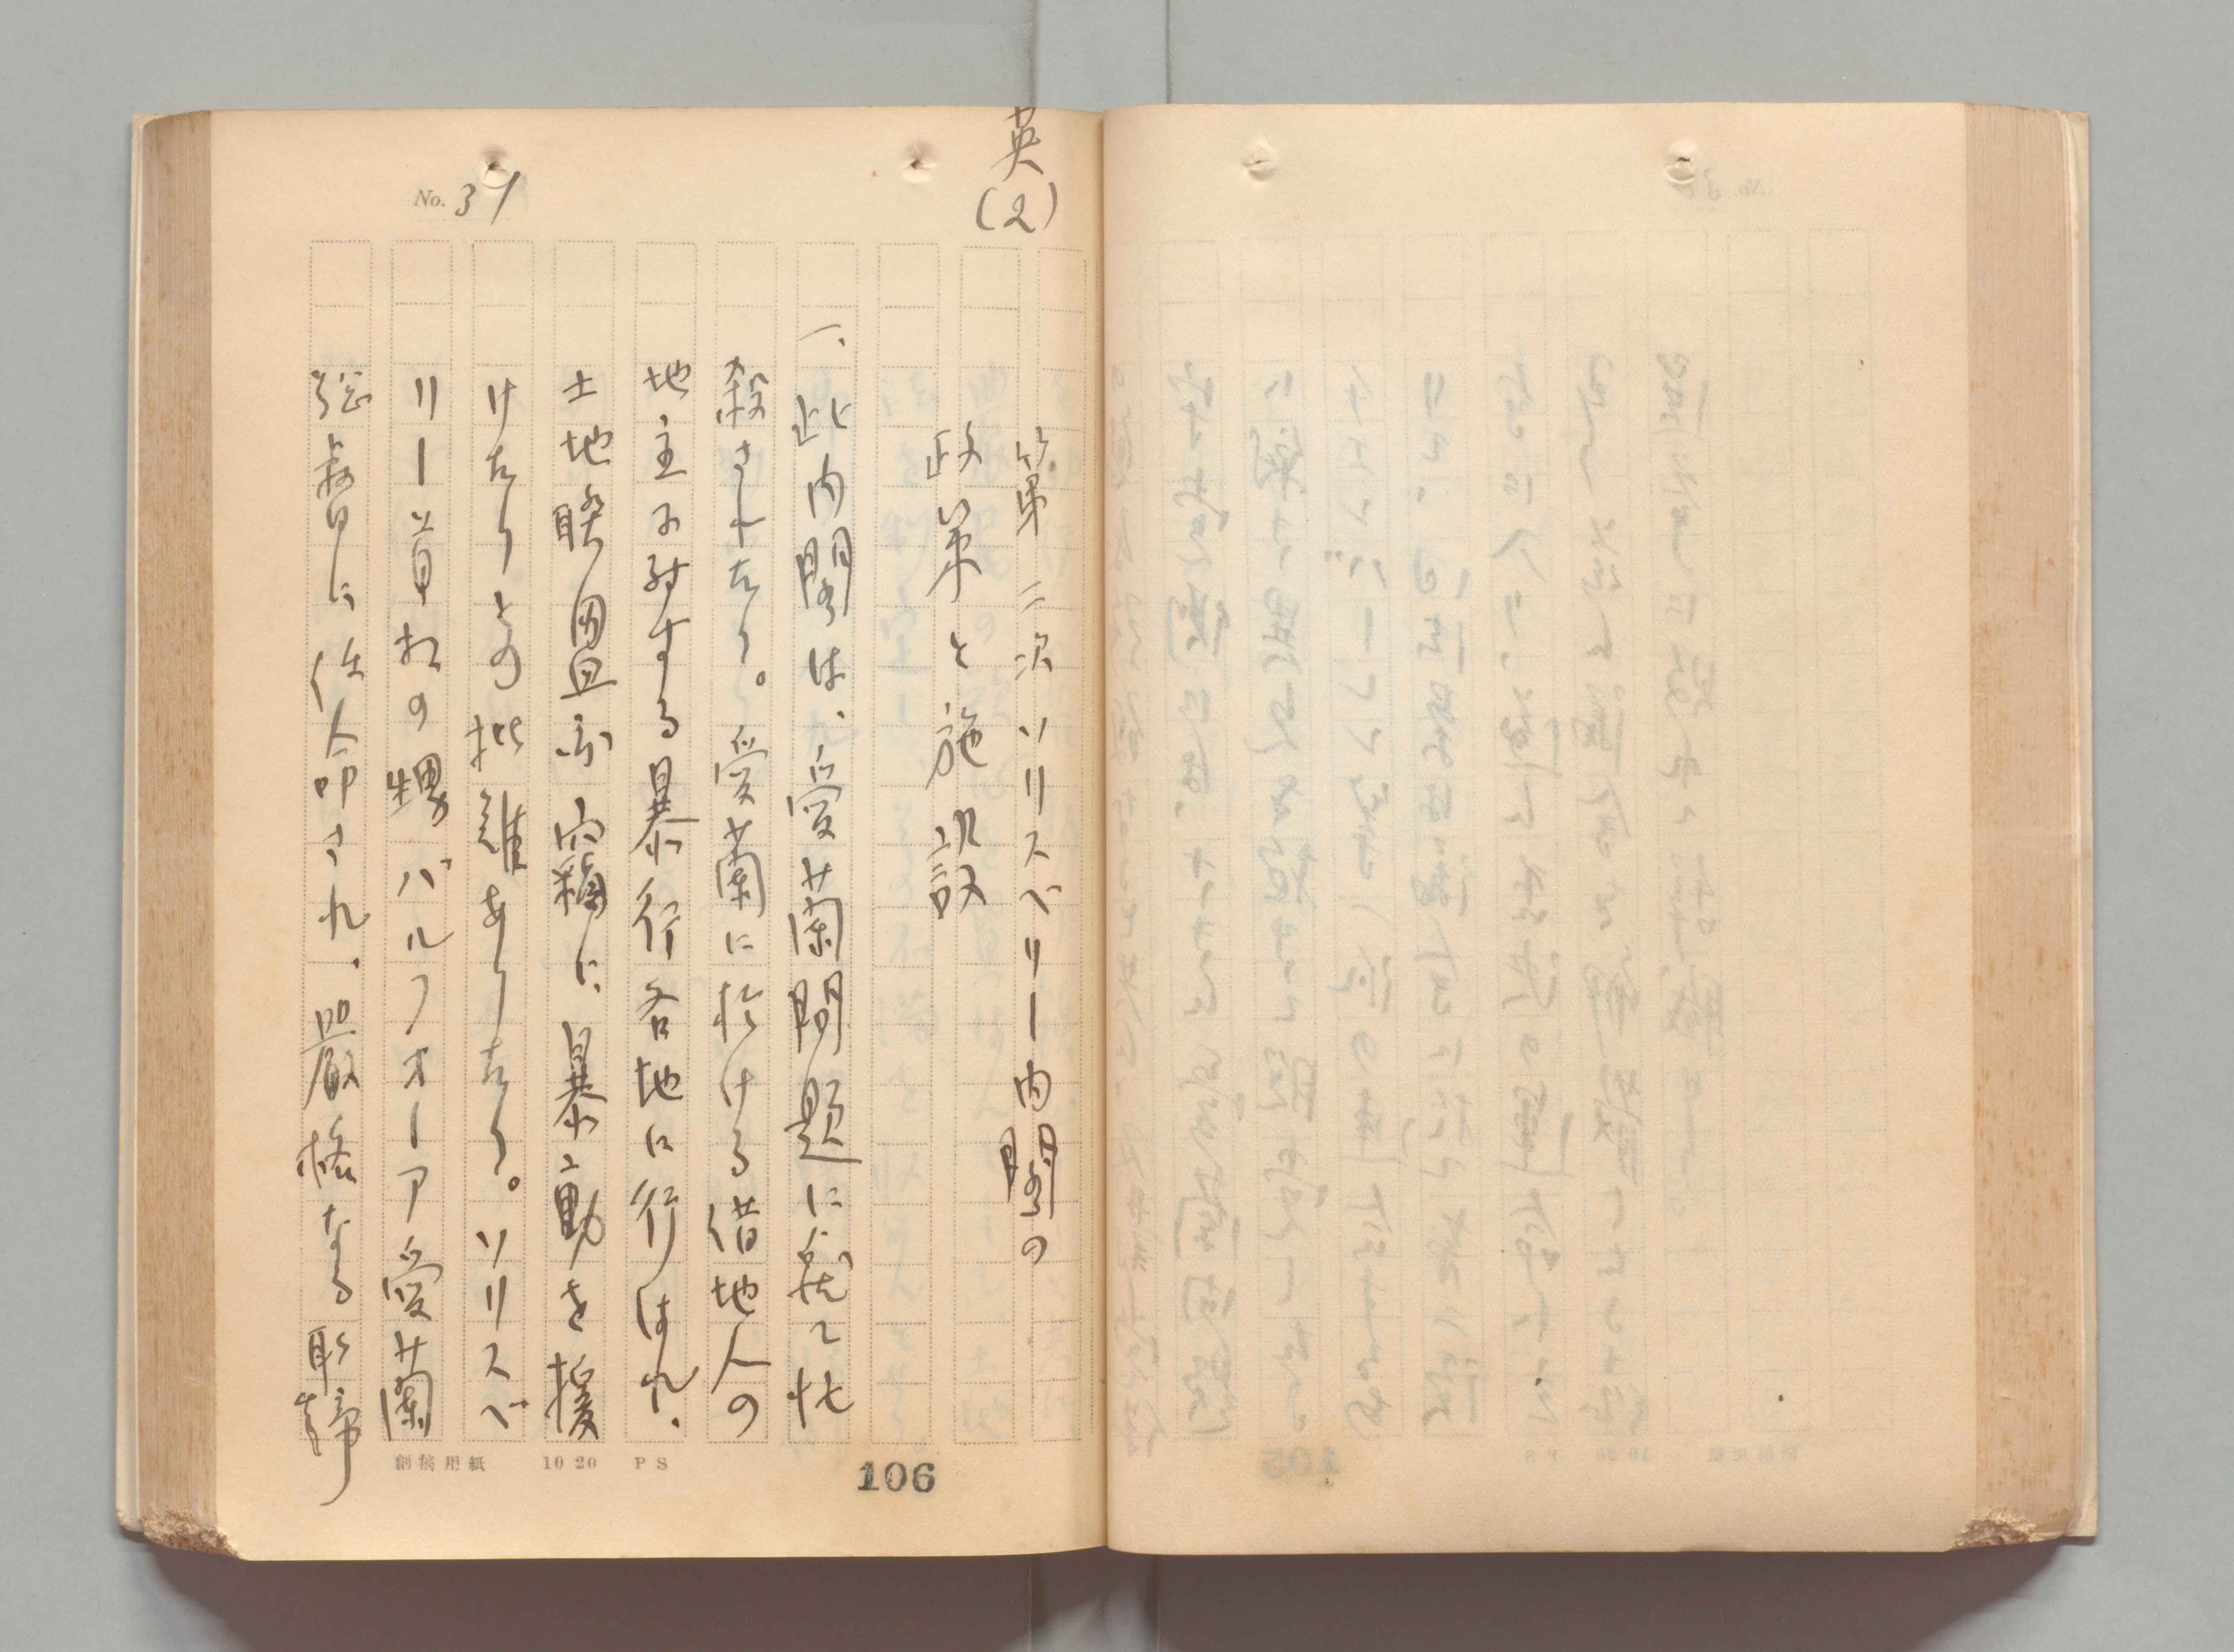 英
(2)
No. 37
第二次ソリスベリー内閣の
政策と施設
一、此内閣は、愛蘭問題に就て忙
殺されたり。愛蘭に於ける借地人の
地主に対する暴行各地に行はれ、
土地聯盟亦窃に暴動を援
けたりとの批難ありたり。ソリスベ
リー首相の甥バルフオーア愛蘭
総督に任命され、厳格なる取締
創稿用紙 10 20 PS
106